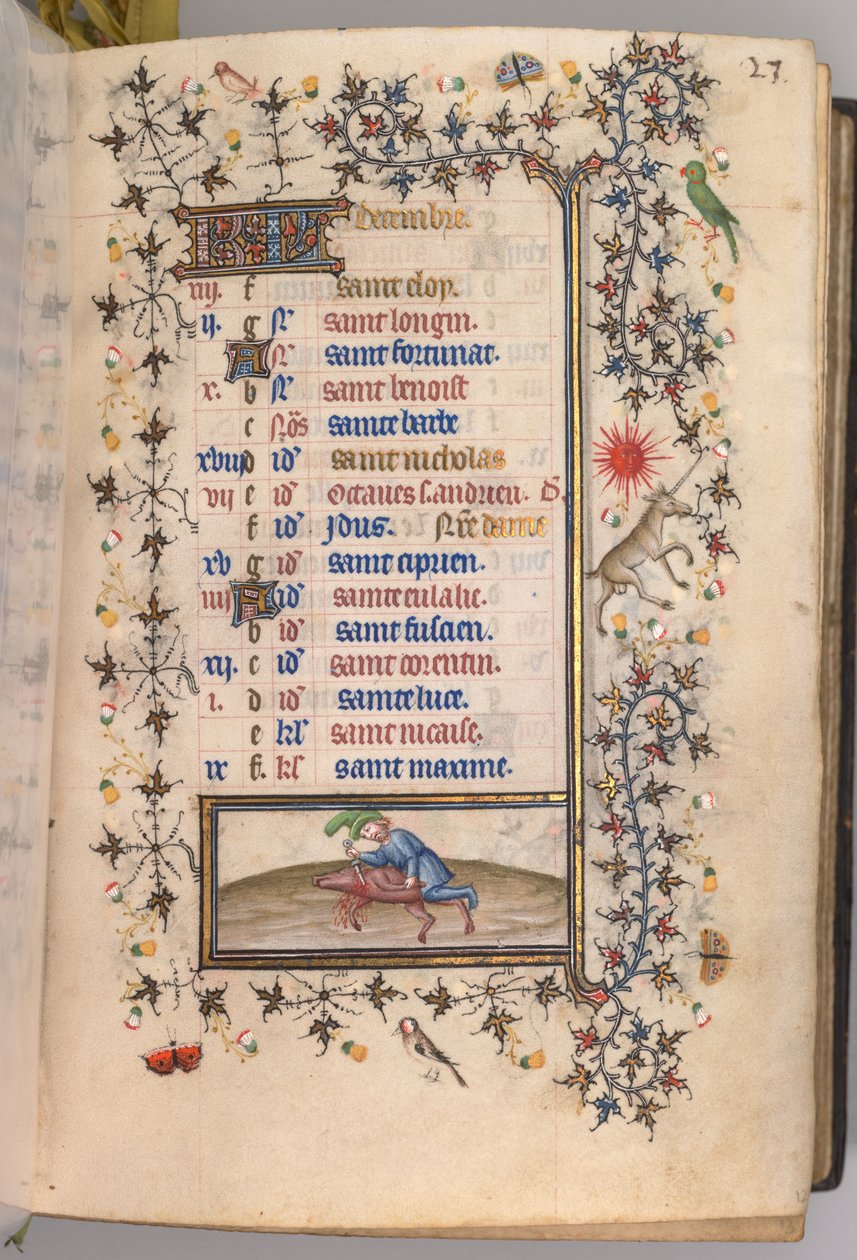 27.
KL Decembre.
xiij. f saint eloy.
ij. g N saint longin.
A N saint fortunat.
x. b N saint benoist
c Nõs sainte barbe
xviij d id saint nicholas
vij e id Octaues s. andrieu. D.
f id Jdus. Nr̃e dame
xv g id saint ciprien.
iiij A id sainte eulalie.
b id saint fuscien.
xij. c id saint corentin.
i. d id sainte luce.
e kl saint nicaise.
ix f. kl saint maxime.